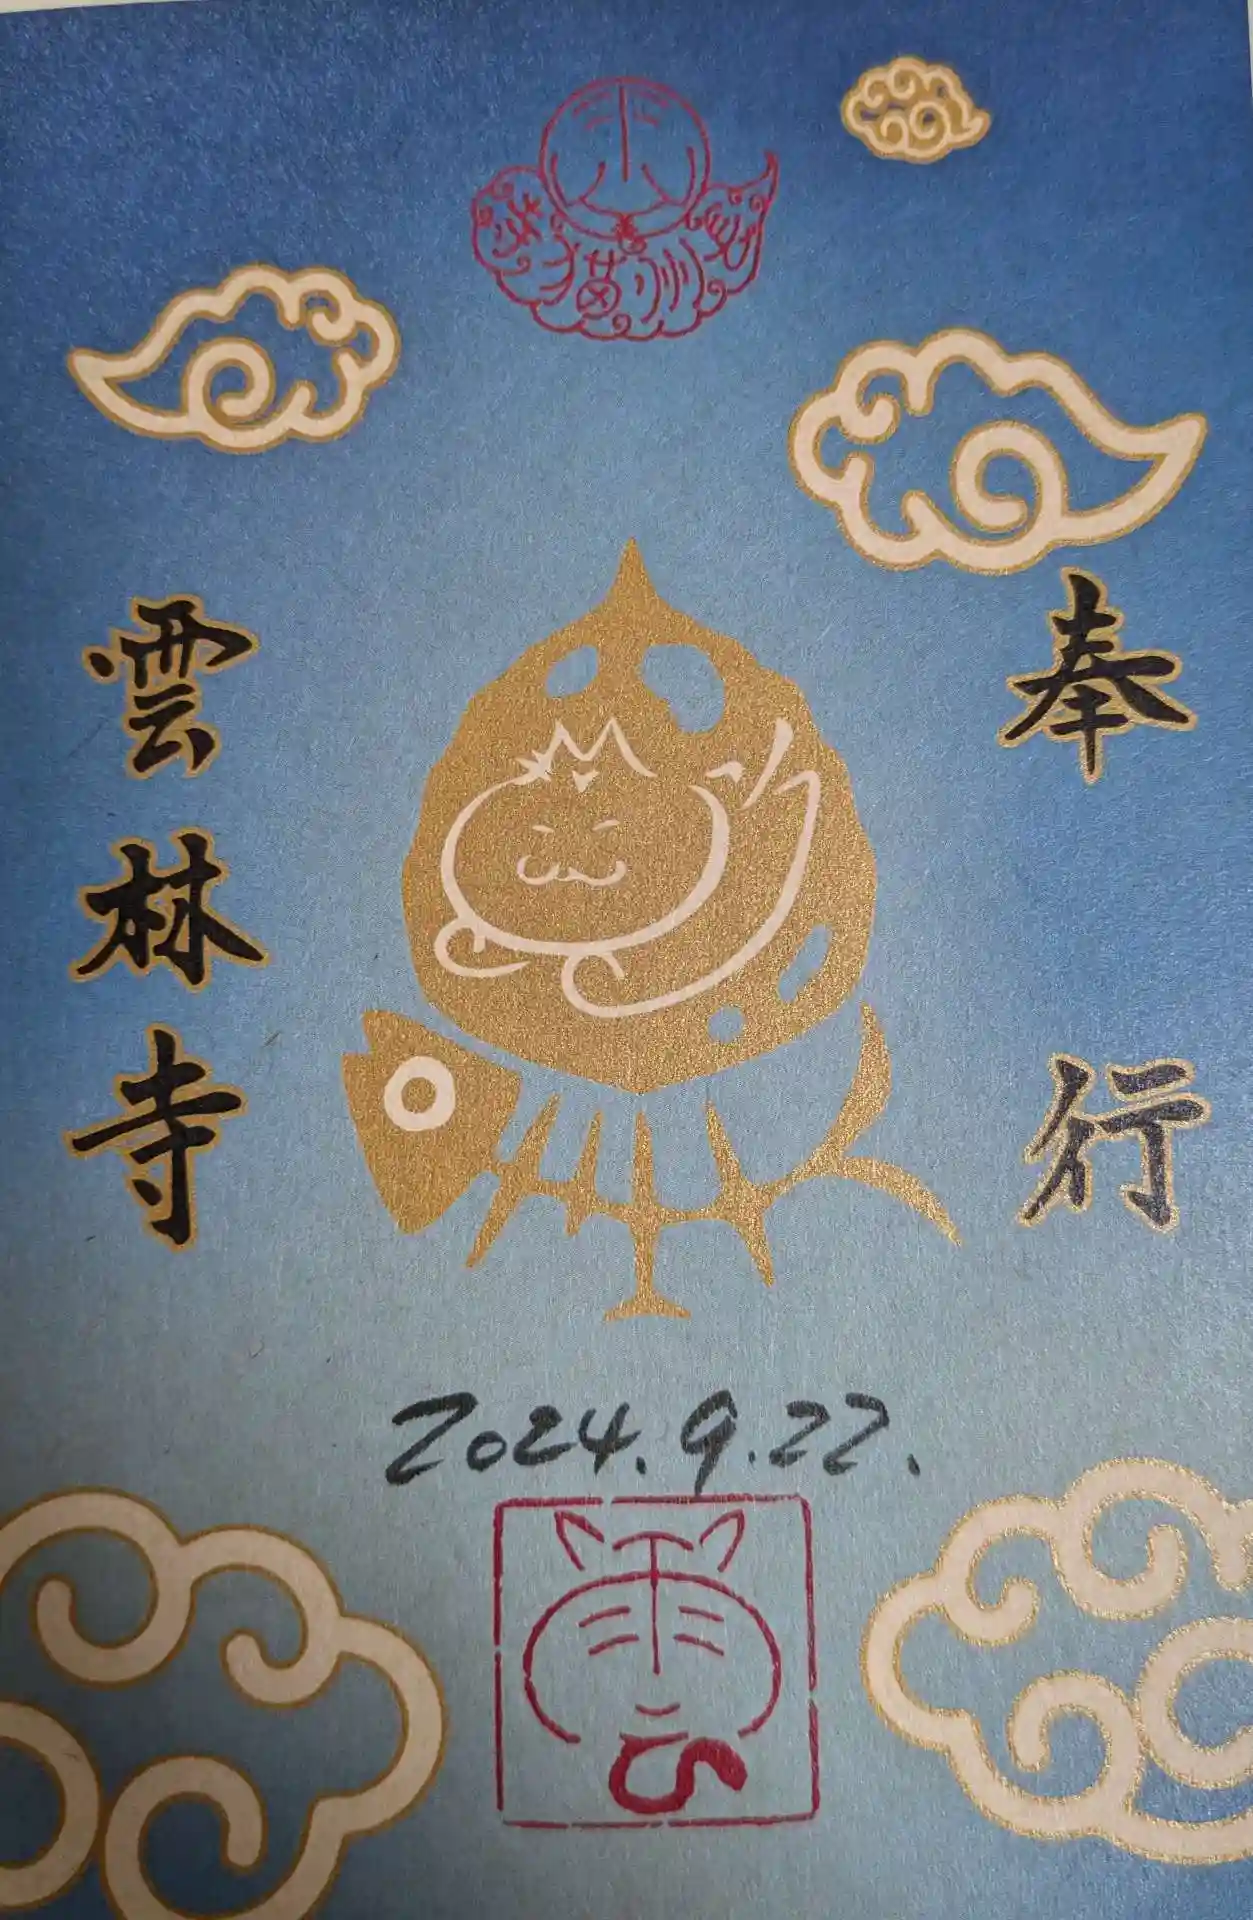 奉行
雲林寺
2024.9.22.